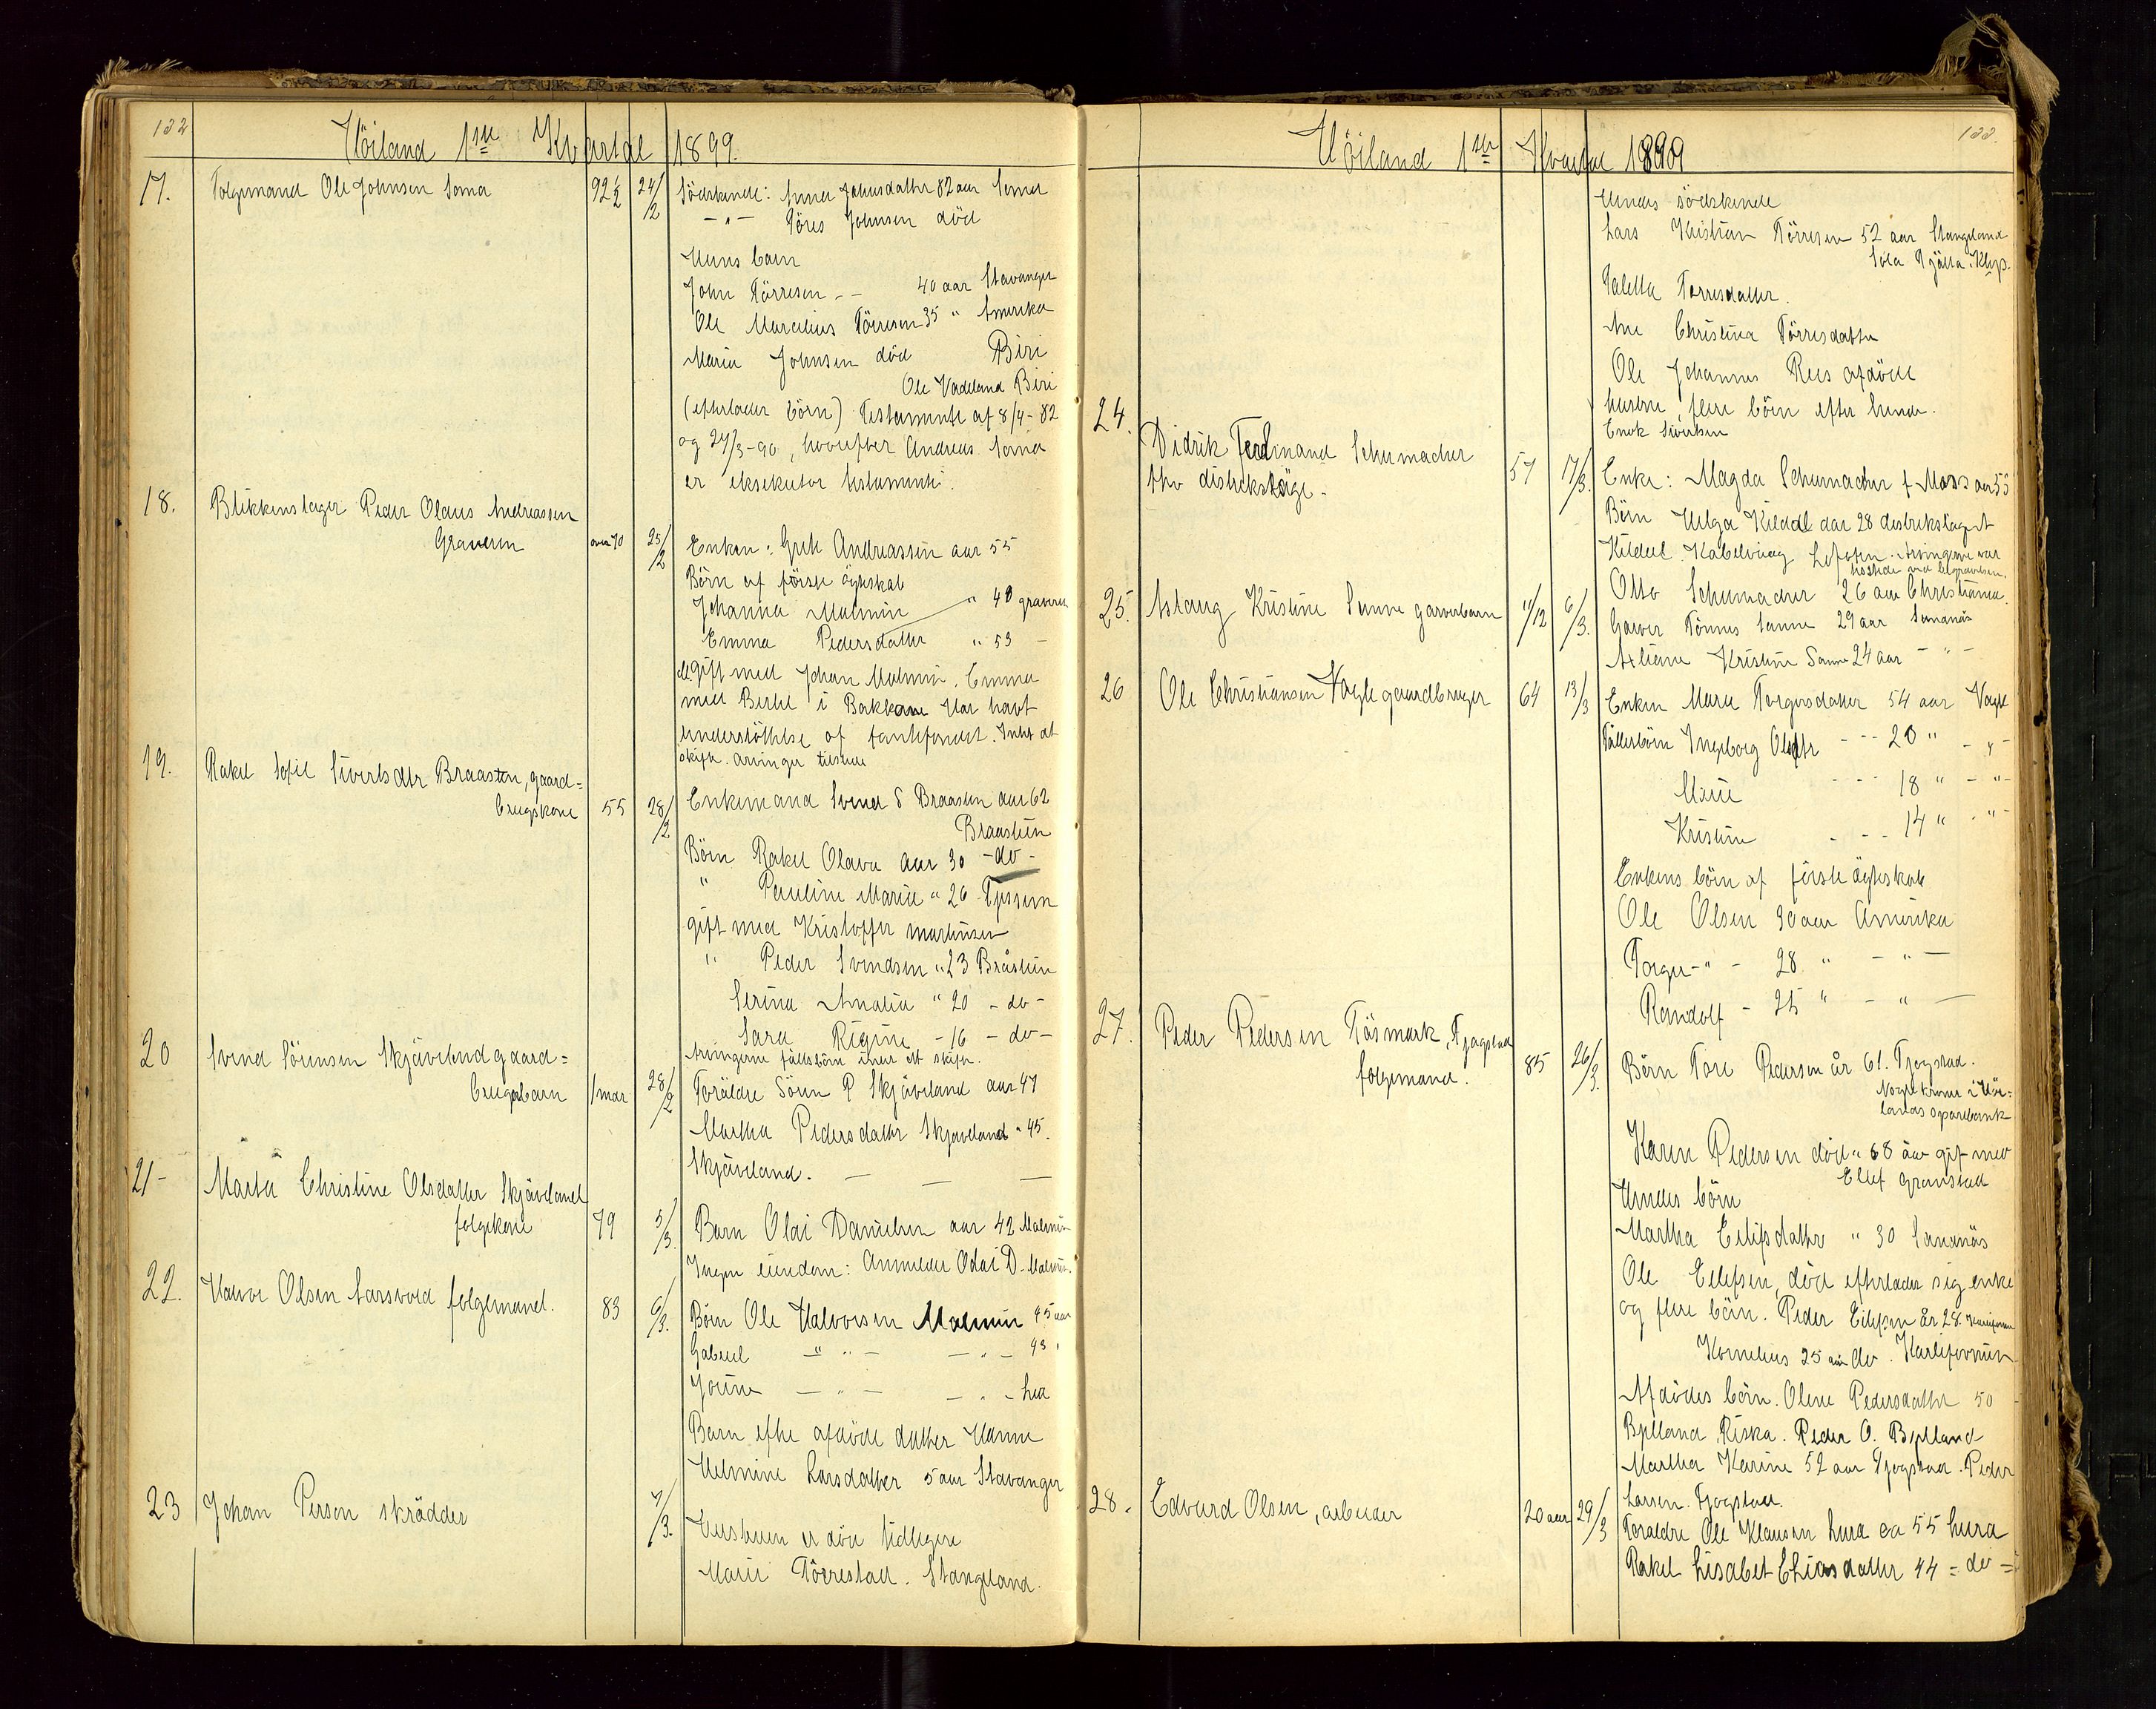 132
Höiland 1ste Kvartal 1899.
17. Folgemand Ole Johnsen Soma 92½ 24/2 Södskende: Anna Johnsdatter 82 aar Soma
– " – Töres Johnsen död
Hans barn
John Törresen – – 40 aar Stavanger
Ole Marcelius Törresen 35 " Amerika
Maria Johnsen död Biri
Ole Vadeland Biri
(efterlader börn) Testamente af 8/4 - 82
og 27/3 - 90, hvorefter Andreas Soma
er eksekutor testamenti.
18. Blikkenslager Peder Olaus Andreassen
Graveren over 70 25/2 Enken: Grete Andreassen aar 55
Börn af förste ægteskab
Johanna Malmin " 40 graveren
Emma Pedersdatter " 53 –
gift med Johan Malmin. Emma
med Bertel i Bakkene Har havt
understöttelse af fantefondet. Intet at
skifte. arvinger tilstede
19. Rakel Sofie Sivertsdtr Braasten, gaard=
brugskone 55 28/2 Enkemand Svend S Braasten aar 62
Braasten
Börn Rakel Olava aar 30 – do –
" Pauline Marie " 26 Tjessem
gift med Kristoffer Martinsen
" Peder Svendsen " 23 Bråsten
Serina Amalia " 20 – do –
Sara Regine – 16 – do –
Arvingerne fællesbörn intet at skifte.
20 Svend Sörensen Skjæveland gaard=
brugsbarn 1 mdr 28/2 Forældre Sören P Skjæveland aar 47
Martha Pedersdatter Skjæveland " 45.
Skjæveland. — — —
21 – Marta Christine Olsdatter Skjæveland
folgekone 79 5/3. Barn Olai Danielsen aar 42 Malmin
Ingen eiendom: Anmelder Odai D. Malmin.
22. Halvor Olsen Aarsvold folgemand. 83 6/3. Börn Ole Halvorsen Malmin 45 aar
Gabriel – " – " – – " – 43 "
Jorine – " – – " – Lea
Barn efter afdöde datter Hanne
Helmine Larsdatter 5 aar Stavanger
23 Johan Person skrædder 7/3. Hustruen er död tidligere
Marie Törrestad. Stangeland.
133.
Höiland 1ste Kvartal 1899
Hendes södskende
Lars Kristian Törresen 52 aar Stangeland
Sola Tjötta. Klep.
Taletta Torresdatter.
Ane Christina Törresdatter
Ole Johannes Rees afdöde
hustru, flere börn efter hende.
Enok Sivertsen
24. Didrik Ferdinand Schumacher
fhv distriktslæge. 57 17/3. Enke: Magda Schumacher f Moss aar 53
Börn Helga Kildal aar 28 distriktslæge
Kildal Kabelvaag Lofoten. Arvingerne var
tilstede ved begravelsen.
Otto Schumacher 26 aar Christiania.
25. Aslaug Kristine Sunne garverbarn 11/12 6/3. Garver Tönnes Sunne 29 aar Sandnæs
Axliane Kristine Sunne 24 aar – " –
26 Ole Christiansen Vagle gaardbruger 64 13/3 Enken Maren Torgersdatter 54 aar Vagle
Fællesbörn Ingeborg Olsdtr – – – 20 " – " –
Marie – – – 18 " – " –
Kristine – – – 14 " – " –
Enkens börn af förste ægteskab
Ole Olsen 30 aar Amerika
Torger – " – 28 " – " –
Randolf – 25 " – " –
27. Peder Pedersen Fösmark, Tjogstad
folgemand. 85 26/3. Börn Tore Pedersen år 61. Tjogstad.
Nogle kroner i Höi=
lands sparebank
Karen Pedersen död " 68 år gift med
Ellef Granstad
Hendes börn
Martha Eilifsdatter " 30 Sandnæs
Ole Eilefsen, död efterlader sig enke
og flere börn. Peder Eilifsen år 28. Kalifornien
Kornelius 25 aar do. Kalifornien
Afdödes börn. Olene Pedersdatter 50
Bylland Riska. Peder O. Bylland
Martha Karine 52 aar Tjogstad. Peder
Larsen. Tjogstad.
28. Edvard Olsen, arbeider 20 aar 29/3 Forældre Ole Klausen Lura ca 55 Lura
Rakel Lisabet Eliasdatter 44 = do =